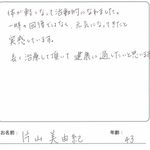 体が軽くなって活動的になれました。
一時の回復ではなく、元気になってきたと
実感しています。
長く治療して頂いて健康に過したいと思います
お名前: 片山 美由紀 年齢: 43